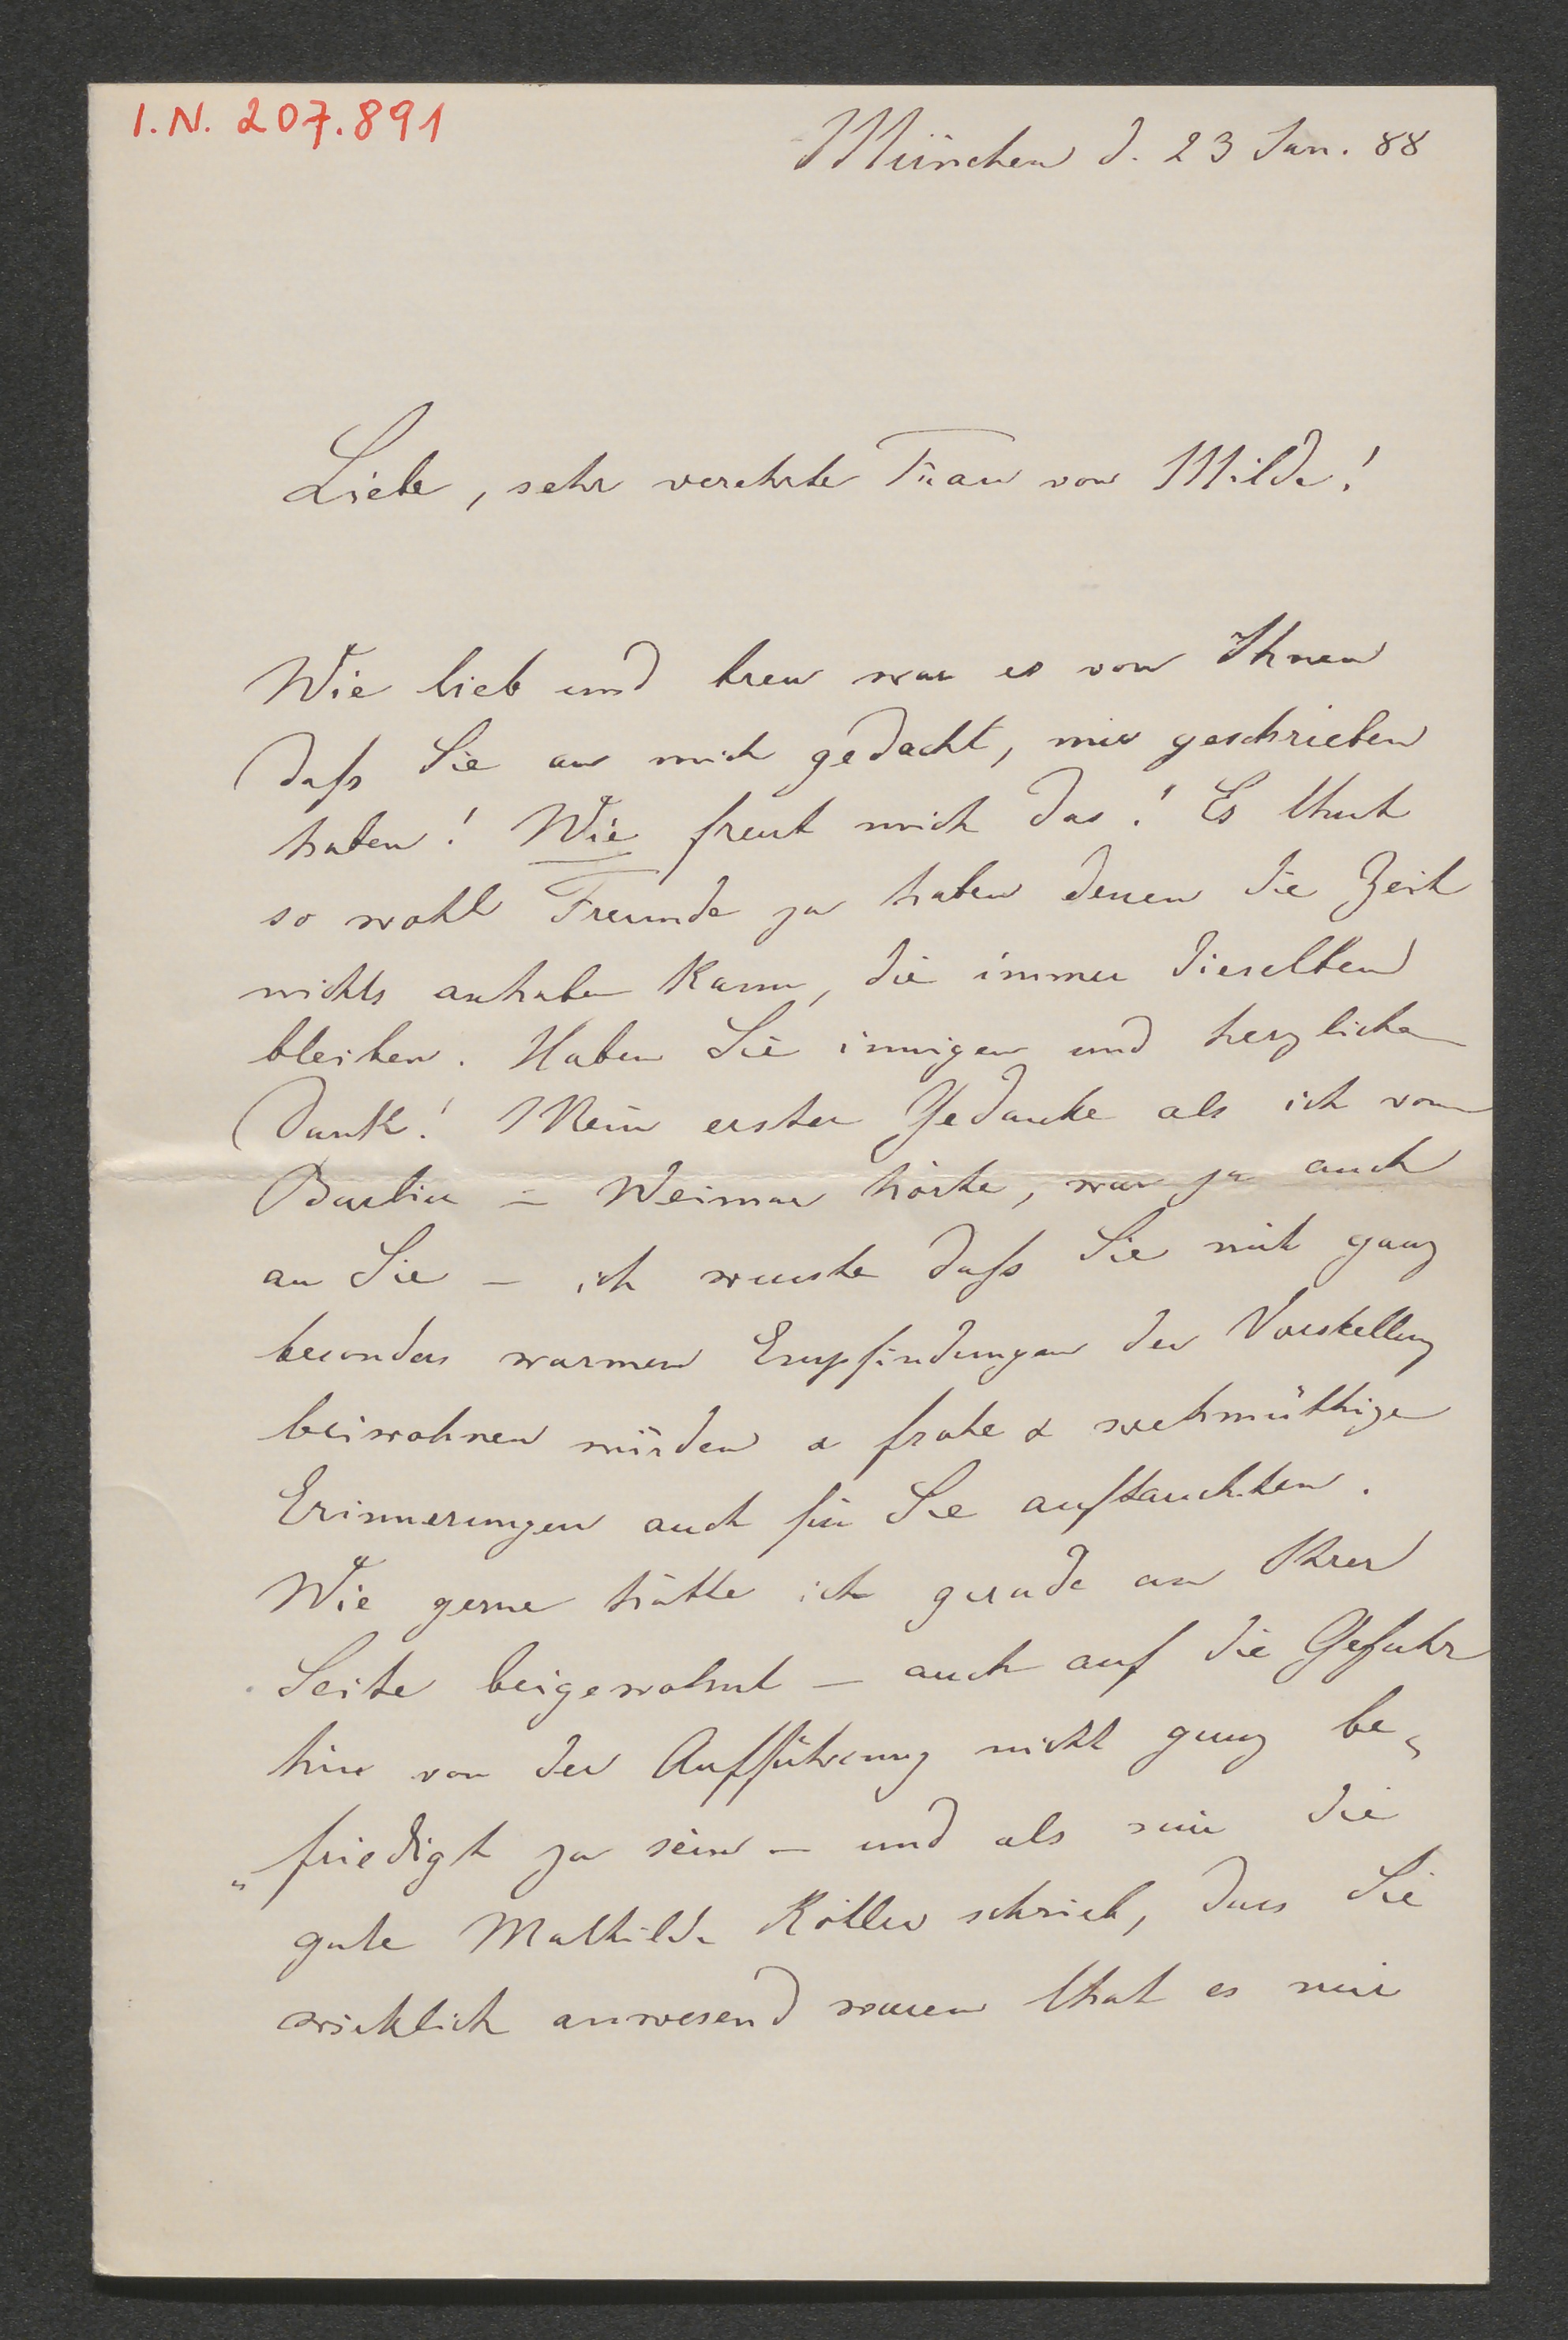 I.N. 207.891
München d. 23 Jan. 88
Liebe, sehr verehrte Frau von Milde!
Wie lieb und treu war es von Ihnen
daß Sie an mich gedacht, mir geschrieben
haben! Wie freut mich das! Es thut
so wohl Freunde zu haben denen die Zeit
nichts anhaben kann, die immer dieselben
bleiben. Haben Sie innigen und herzlichen
Dank! Mein erster Gedanke als ich vom
Barbier - Weimar hörte, war ja auch
an Sie – ich wusste daß Sie mit ganz
besonders warmen Empfindungen der Vorstellung
beiwohnen würden & frohe & wehmüthige
Erinnerungen auch für Sie auftauchten.
Wie gerne hätte ich gerade an Ihrer
Seite beigewohnt – auch auf die Gefahr
hin von der Aufführung nicht ganz be-
friedigt zu sein – und als mir die
gute Mathilde Köller schrieb, dass Sie
wirklich anwesend waren that es mir